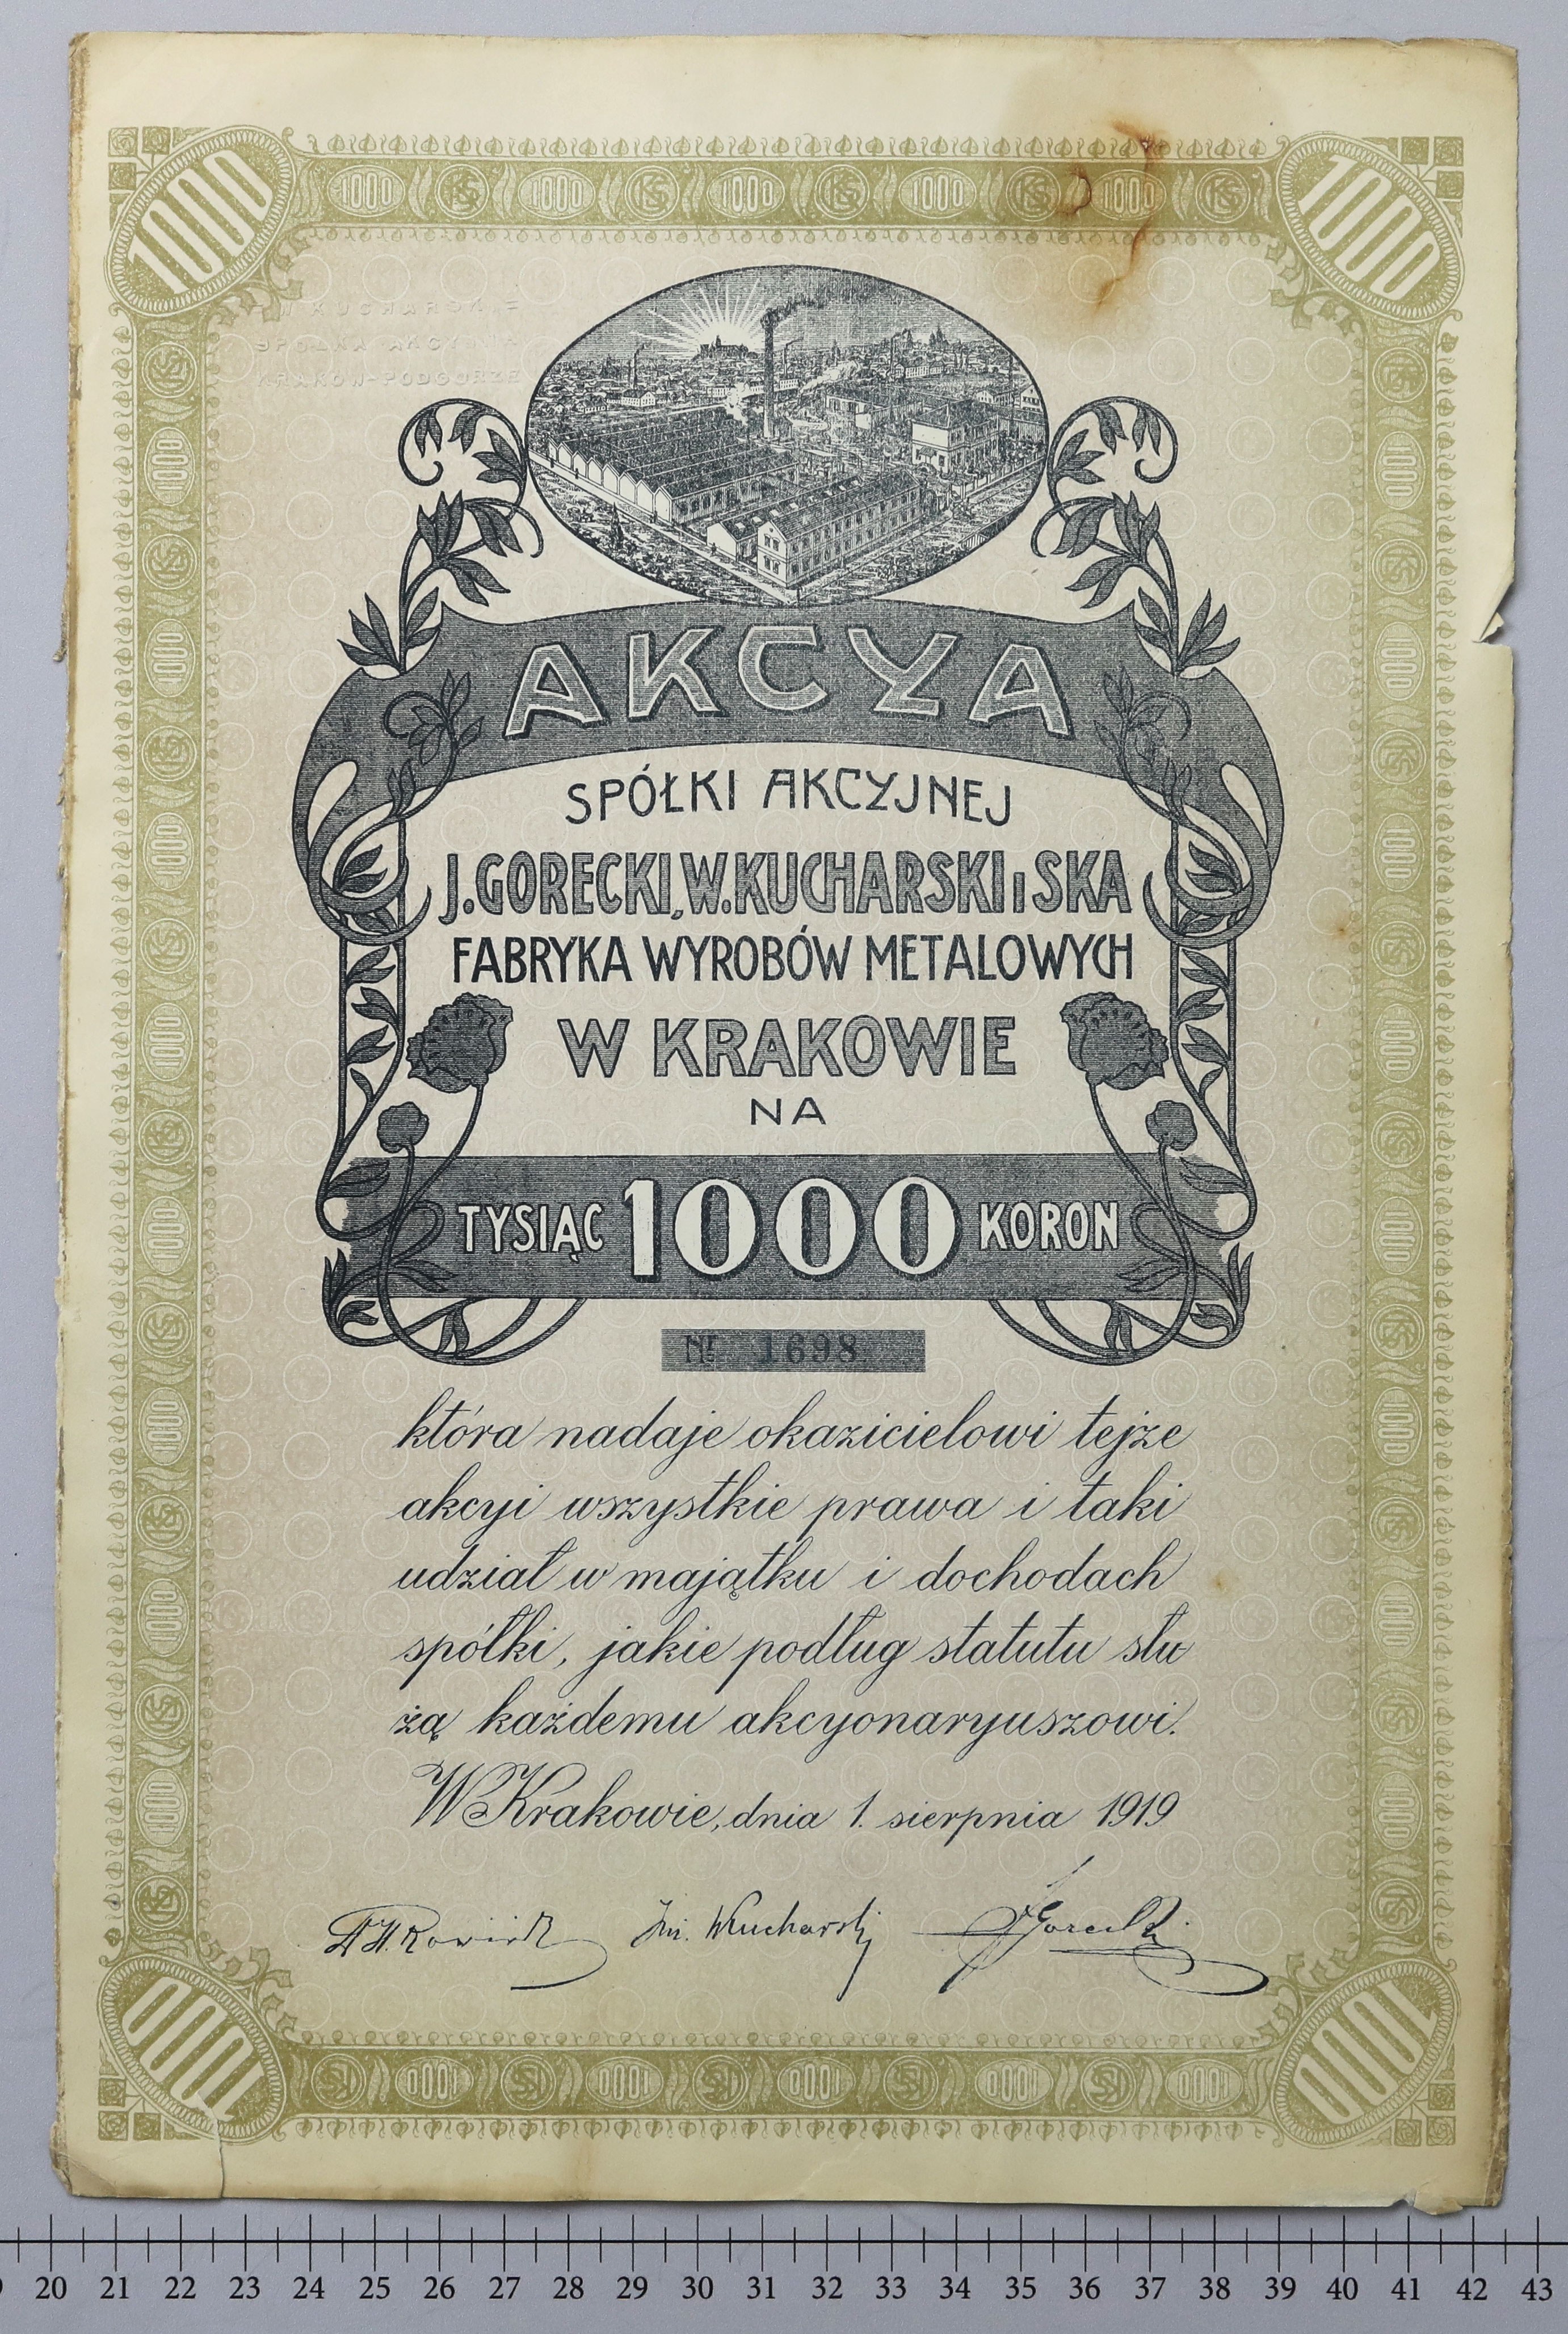 1000 1000 KS 1000 KS 1000 KS 1000 KS 1000 KS 1000
W KUCHARSKI
SPÓŁKA AKCYJNA
KRAKÓW-PODGÓRZE
AKCYA
SPÓŁKI AKCYJNEJ
J. GORECKI, W. KUCHARSKI i SKA
FABRYKA WYROBÓW METALOWYCH
W KRAKOWIE
NA
TYSIĄC 1000 KORON
Nr 1698
która nadaje okazicielowi tejże
akcyi wszystkie prawa i taki
udział w majątku i dochodach
spółki, jakie podług statutu słu
żą każdemu akcyonaryuszowi.
W Krakowie, dnia 1. sierpnia 1919
Inż. WKucharski JGorecki
1000 KS 1000 KS 1000 KS 1000 KS 1000 KS 1000 1000
20 21 22 23 24 25 26 27 28 29 30 31 32 33 34 35 36 37 38 39 40 41 42 43